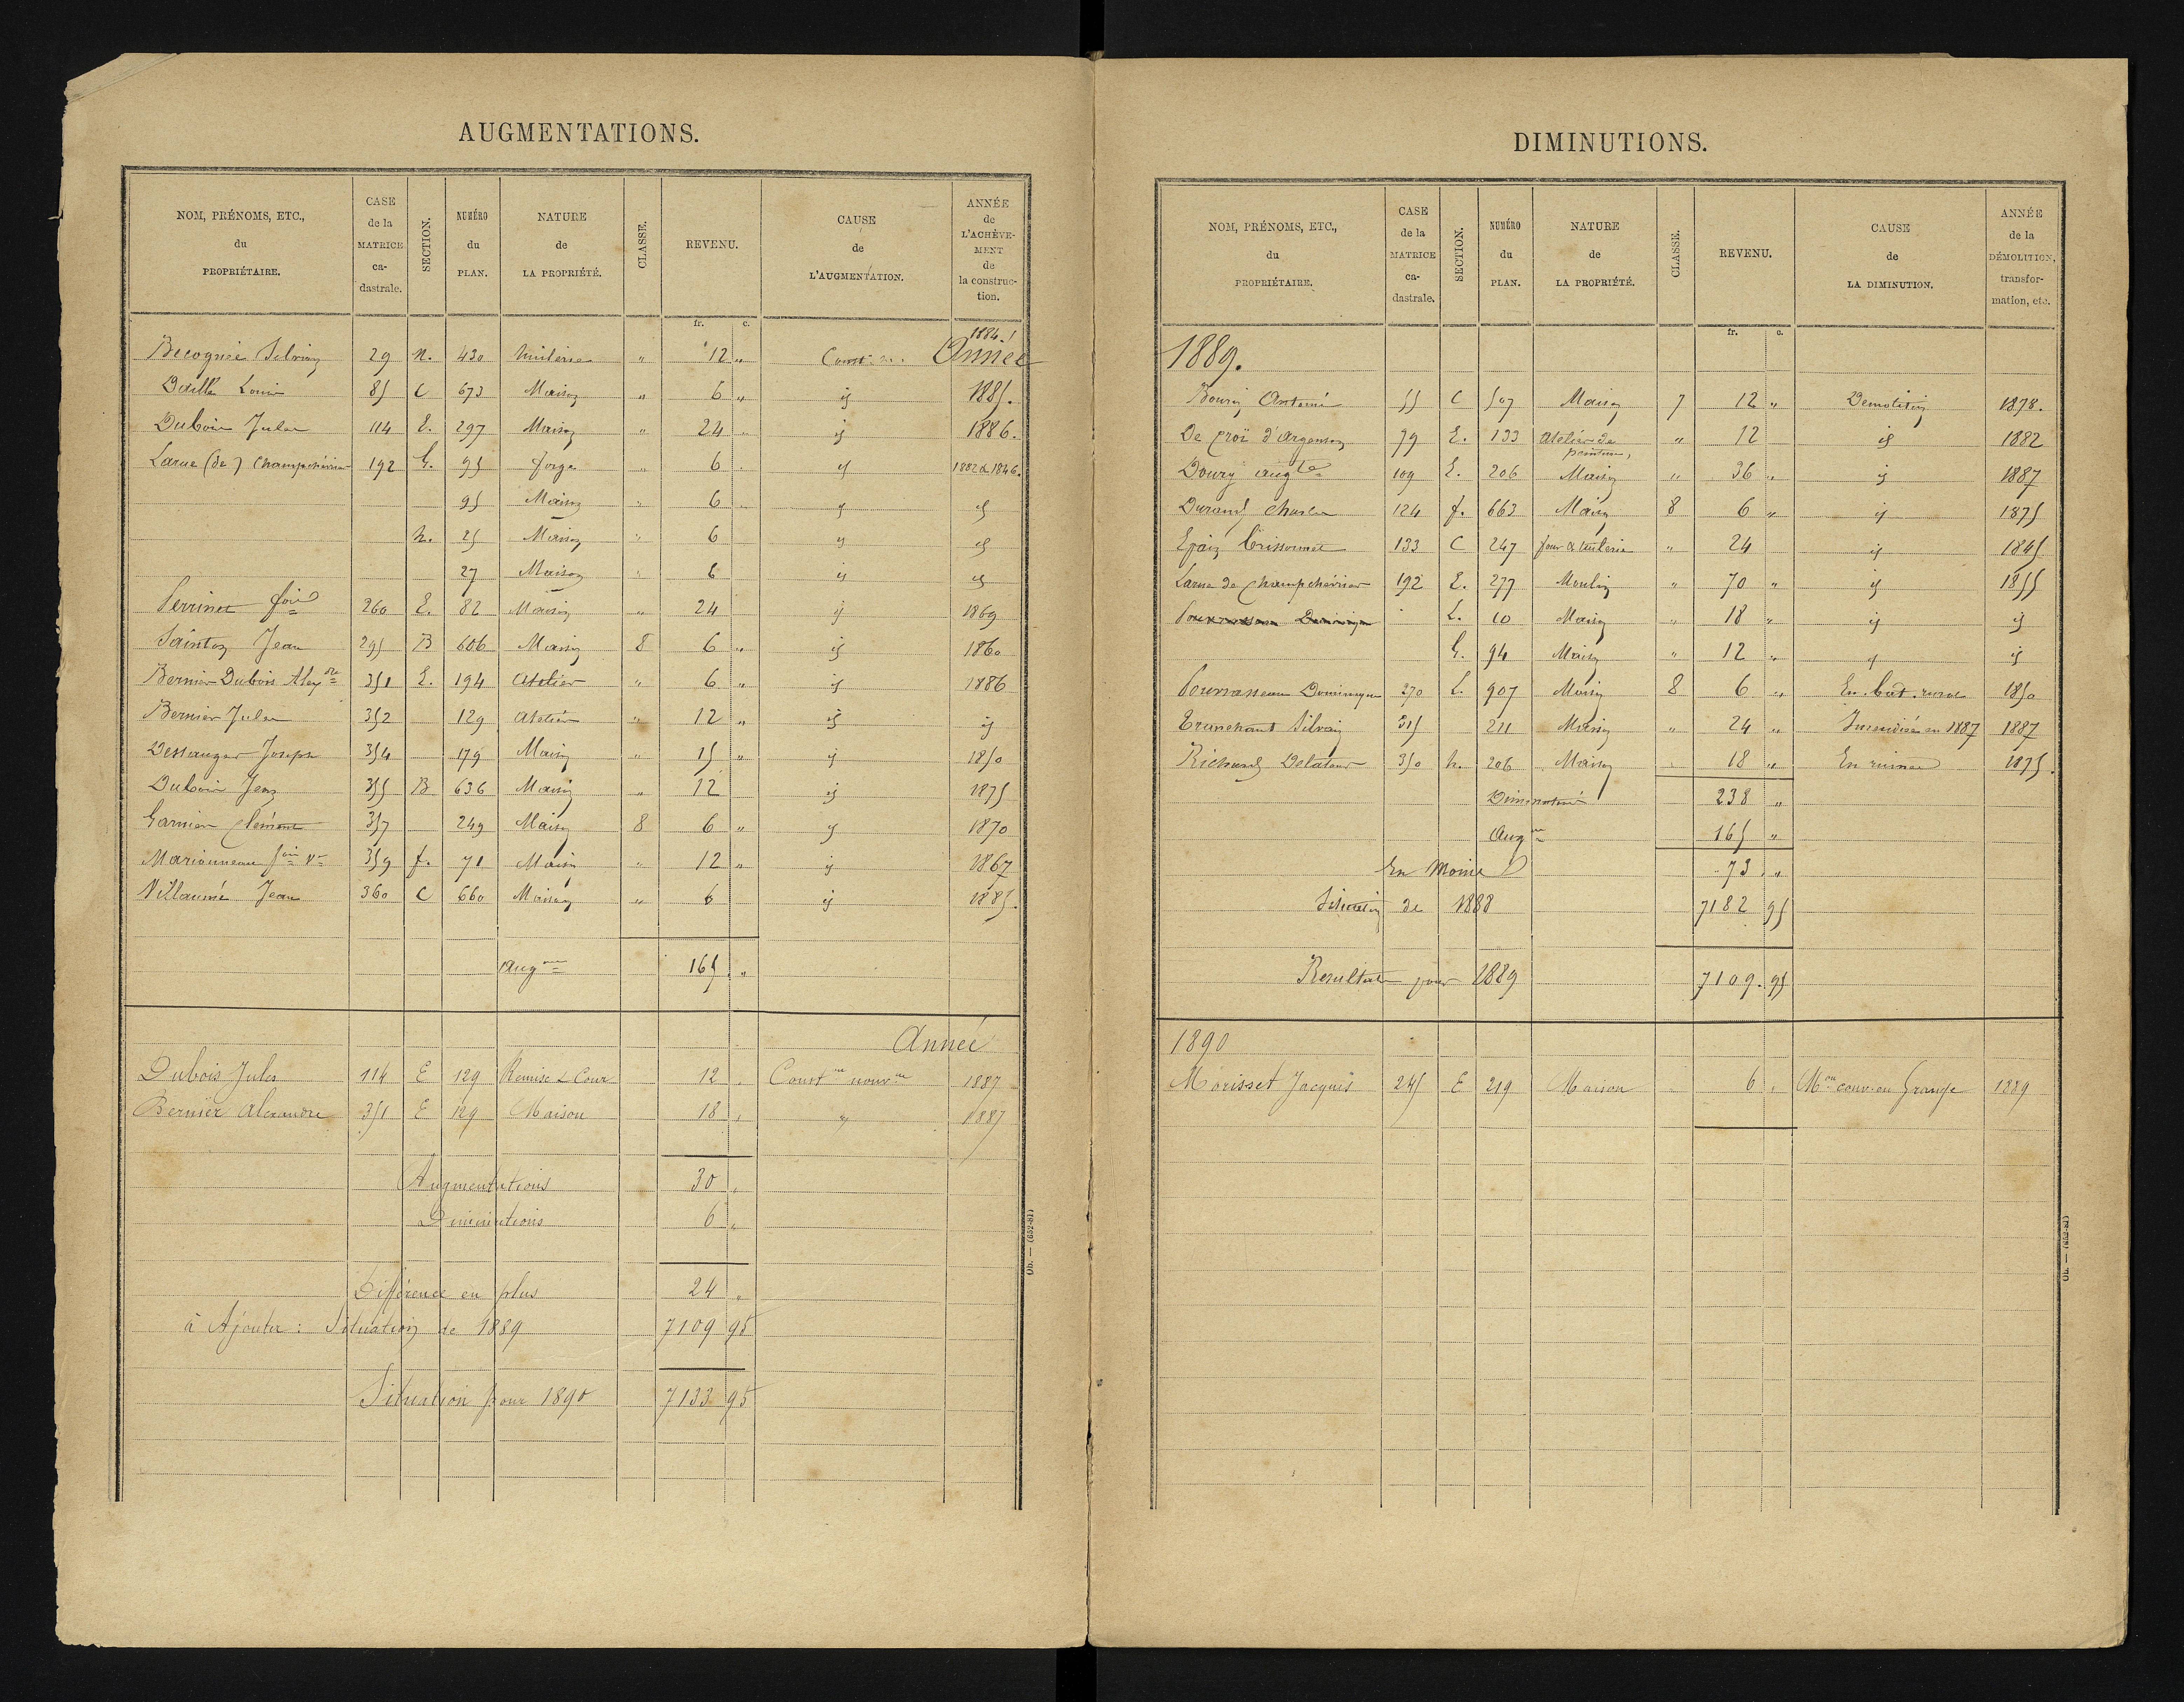 AUGMENTATIONS.
NOM, PRÉNOMS, ETC., du PROPRIÉTAIRE. CASE de la MATRICE ca- dastrale. SECTION. NUMÉRO du PLAN. NATURE de LA PROPRIÉTÉ. CLASSE. REVENU. CAUSE de L'AUGMENTATION. ANNÉE de L'ACHÈVE- MENT de la construc- tion.
fr. c.
Année 1884
29 n. 430 Tuilerie " 12 "
Louis 85 C 673 Maison " 6 " id 1885.
Dubois Jules 114 E. 297 Maison " 24 " id 1886.
Larue (de) Champchévrier 192 G. 95 forge " 6 " id 1882 & 1846.
95 Maison " 6 " id id
h. 25 Maison " 6 id id
27 Maison " 6 id id
Perrinet 260 E. 82 Maison " 24 id 1869
Sainton Jean 295 B 606 Maison 8 6 " id 1860
Bernier Dubois Alexdre 351 E. 194 Atelier " 6 " id 1886
Bernier Jules 352 129 Atelier " 12 " id id
Dessauger Joseph 354 179 Maison " 15 " id 1850
Dubois Jean 355 B 636 Maison " 12 id 1875
Garnier Clément 357 249 Maison 8 6 " id 1870
Marionneau 359 f. 71 Maison " 12 " id 1867
Villaumé Jean 360 C 660 Maison " 6 id 1885.
Augon 165 "
Année
Dubois Jules 114 E 129 Remise & Cour 12 " Conston nouvle 1887
Bernier Alexandre 351 E 129 Maison 18 " " 1887
Augmentations 30 "
Diminutions 6 "
Différence en plus 24 "
à Ajouter : Situation de 1889 7109 95
Situation pour 1890 7133 95
Ob. — (652-81)
DIMINUTIONS.
NOM, PRÉNOMS, ETC., du PROPRIÉTAIRE. CASE de la MATRICE ca- dastrale. SECTION. NUMÉRO du PLAN. NATURE de LA PROPRIÉTÉ. CLASSE. REVENU. CAUSE de LA DIMINUTION. ANNÉE de la DÉMOLITION, transfor- mation, etc.
fr. c.
1889.
Antoine 55 C 507 Maison 7 12 " Demolition 1878.
De d'Argenson 79 E. 133 Atelier de peinture, " 12 id 1882
Doury Augte 109 E. 206 Maison " 36 " id 1887
Durand Charles 124 f. 663 Maison 8 6 " id 1875
Epain 133 C 247 four à tuilerie " 24 id 1845
Larue de Champchévrier 192 E. 277 Moulin " 70 " id 1855
L. 10 Maison " 18 " id id
G. 94 Maison " 12 " id id
Pourrasseau Dominique 270 L. 907 Maison 8 6 " En bat. rural 1850
Trunchant Silvain 315 211 Maison " 24 " Incendiée en 1887 1887
Richard Delatour 350 h. 206 Maison " 18 " En ruines 1875.
238 "
Augon 165 "
En Moins 73 "
Situation de 1888 7182 95
Resultat pour 1889 7109.95
1890
Morisset Jacques 245 E 219 Maison 6 " Mon conv. en Grange 1889
Ob. — (652-81)